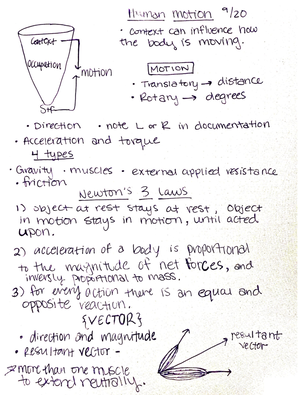 Human motion 9/20
Context
• context can influence how
the body is moving.
Occupation
motion
MOTION
• Translatory → distance
• Rotary → degrees
• Direction • note L or R in documentation
• Acceleration and torque
4 types
• Gravity • muscles • external applied resistance
• friction
Newton's 3 Laws
1) object at rest stays at rest, object
in motion stays in motion, until acted
upon.
2) acceleration of a body is proportional
to the magnitude of net forces, and
inversly proportional to mass.
3) For every action there is an equal and
opposite reaction.
{VECTOR}
• direction and magnitude
• resultant vector -
resultant
vector
more than one muscle
to extend neutrally.